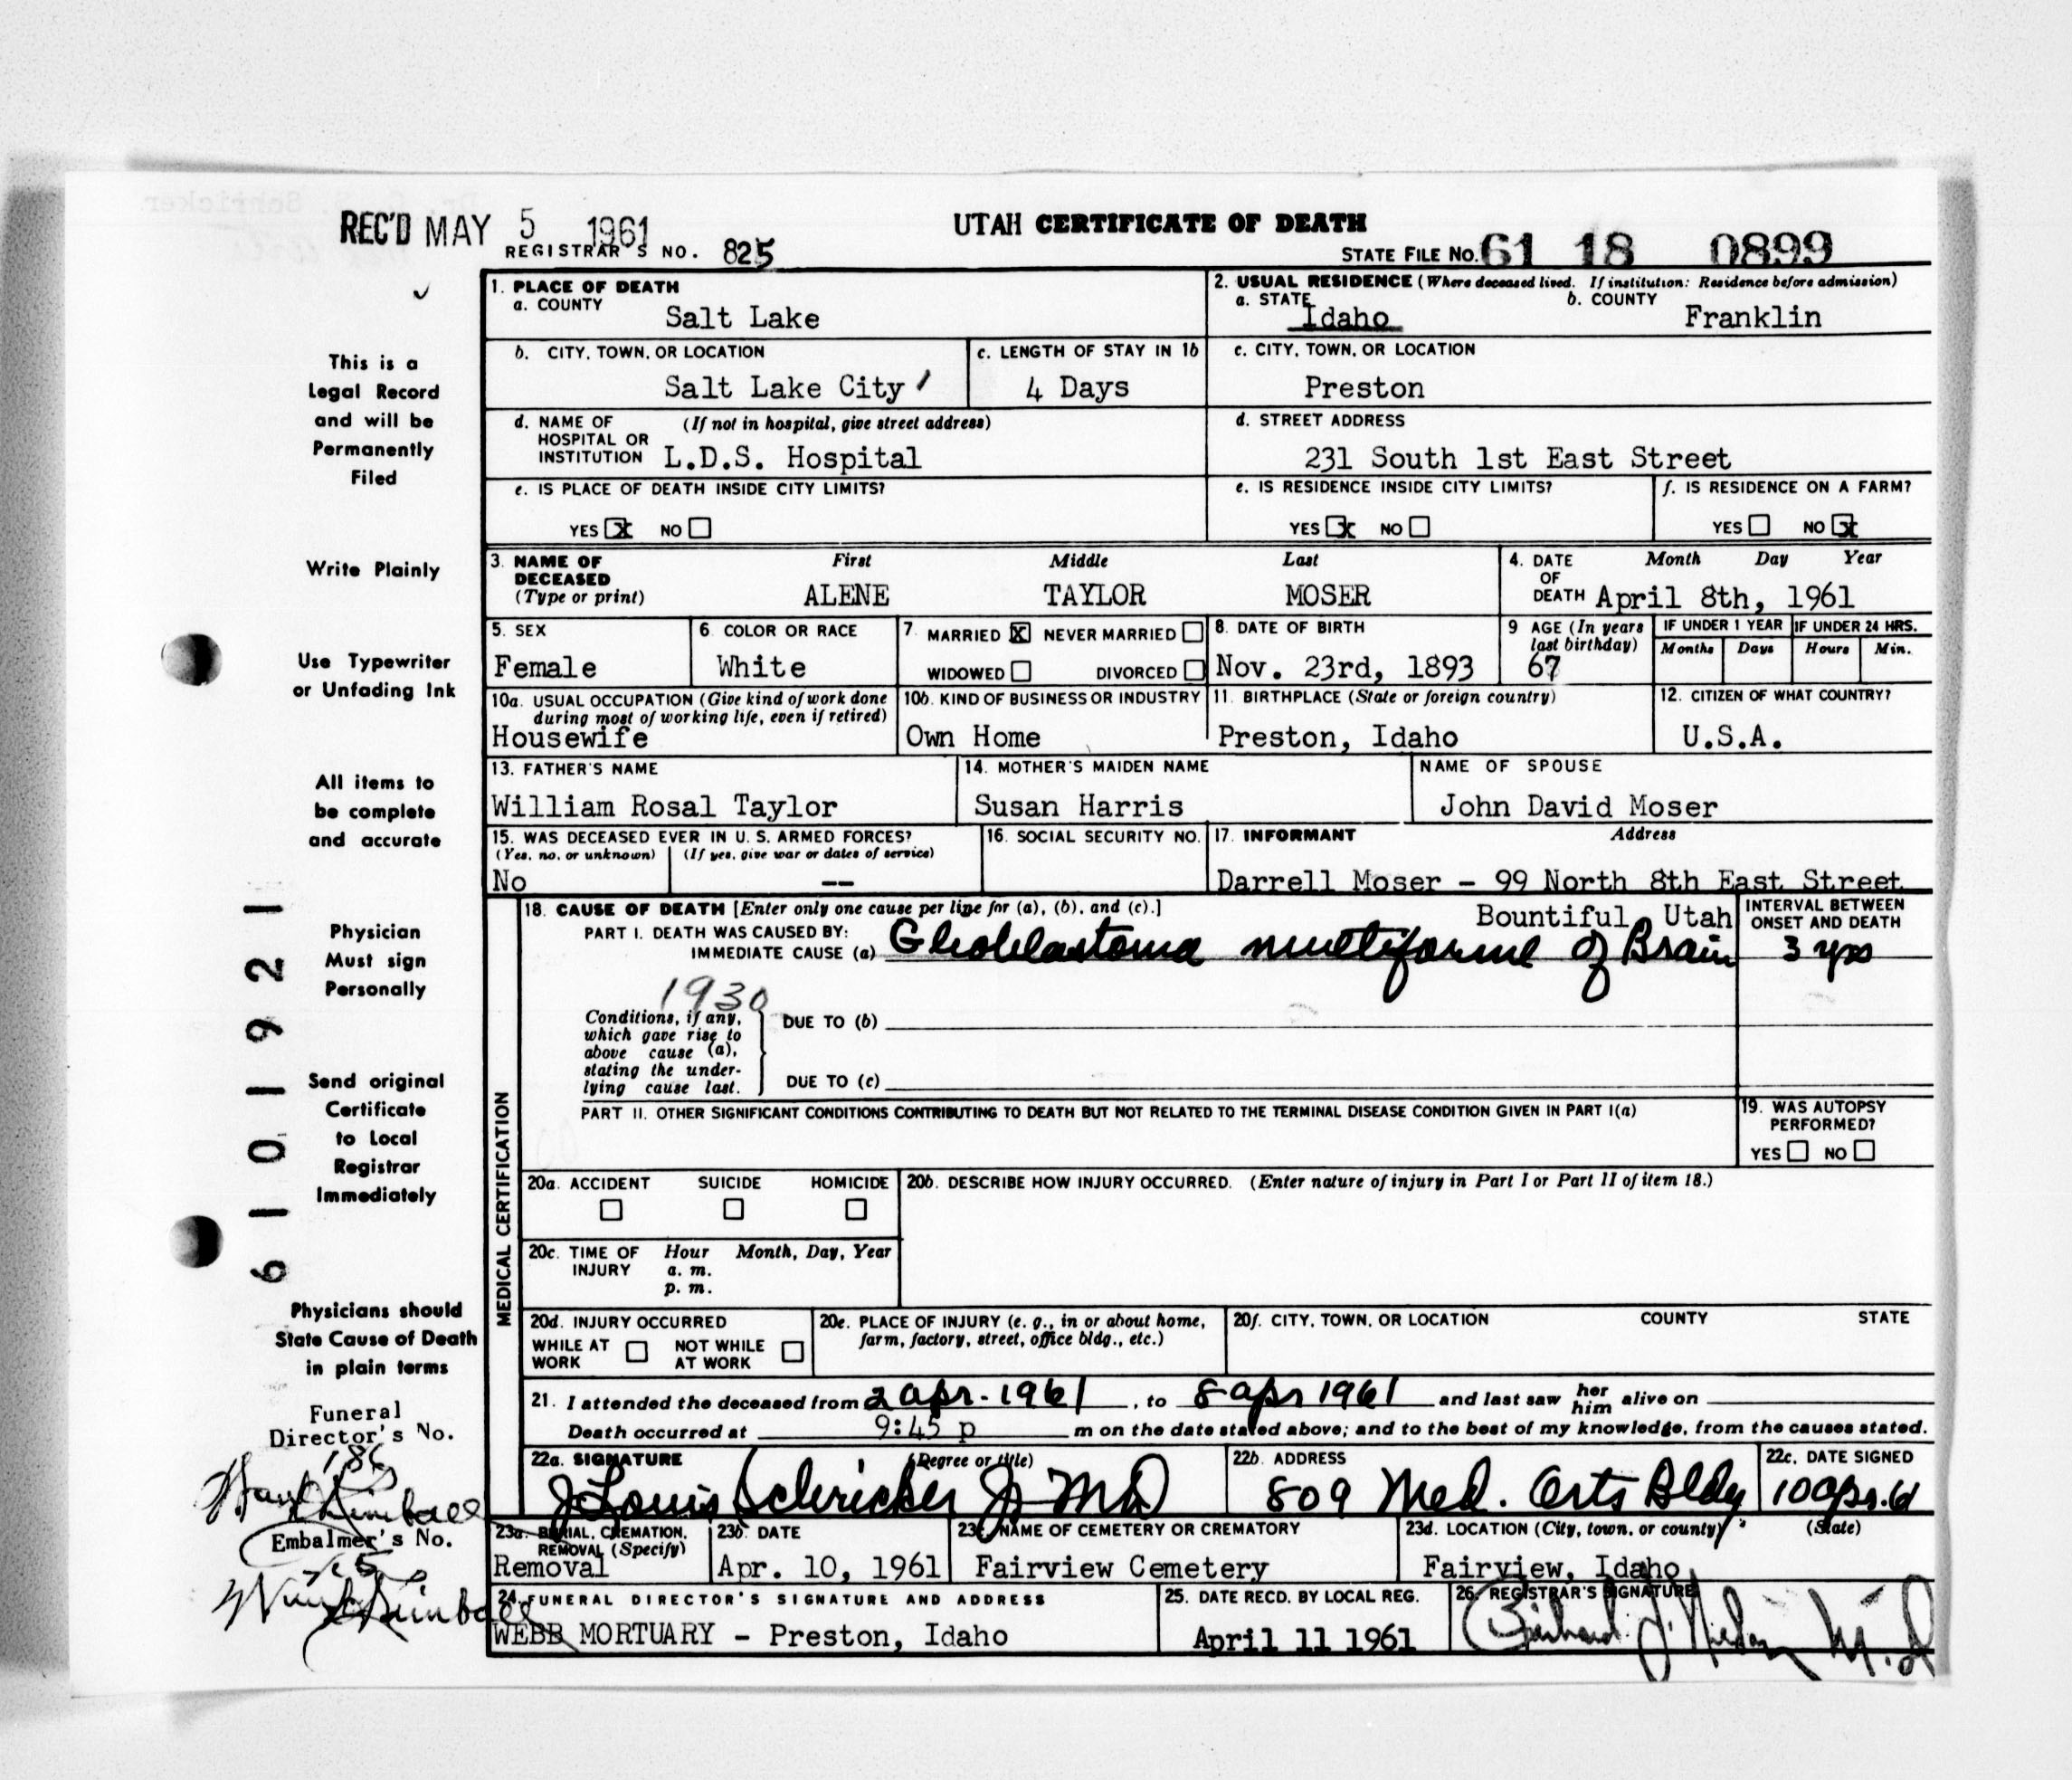 REC'D MAY 5 1961
REGISTRAR'S NO. 825
UTAH CERTIFICATE OF DEATH
STATE FILE No. 61 18 0899
This is a
Legal Record
and will be
Permanently
Filed
Write Plainly
Use Typewriter
or Unfading Ink
All items to
be complete
and accurate
Physician
Must sign
Personally
Send original
Certificate
to Local
Registrar
Immediately
Physicians should
State Cause of Death
in plain terms
Funeral
Director's No.
186
Embalmer's No.
6101921
1. PLACE OF DEATH
a. COUNTY
Salt Lake
2. USUAL RESIDENCE (Where deceased lived. If institution: Residence before admission)
a. STATE
Idaho
b. COUNTY
Franklin
b. CITY, TOWN, OR LOCATION
Salt Lake City
c. LENGTH OF STAY IN 1b
4 Days
c. CITY, TOWN, OR LOCATION
Preston
d. NAME OF HOSPITAL OR INSTITUTION (If not in hospital, give street address)
L.D.S. Hospital
d. STREET ADDRESS
231 South 1st East Street
e. IS PLACE OF DEATH INSIDE CITY LIMITS?
YES X NO
e. IS RESIDENCE INSIDE CITY LIMITS?
YES X NO
f. IS RESIDENCE ON A FARM?
YES NO X
3. NAME OF DECEASED (Type or print)
First Middle Last
ALENE TAYLOR MOSER
4. DATE OF DEATH
Month Day Year
April 8th, 1961
5. SEX
Female
6. COLOR OR RACE
White
7. MARRIED X NEVER MARRIED
WIDOWED DIVORCED
8. DATE OF BIRTH
Nov. 23rd, 1893
9 AGE (In years last birthday)
67
IF UNDER 1 YEAR
Months Days
IF UNDER 24 HRS.
Hours Min.
10a. USUAL OCCUPATION (Give kind of work done
during most of working life, even if retired)
Housewife
10b. KIND OF BUSINESS OR INDUSTRY
Own Home
11. BIRTHPLACE (State or foreign country)
Preston, Idaho
12. CITIZEN OF WHAT COUNTRY?
U.S.A.
13. FATHER'S NAME
William Rosal Taylor
14. MOTHER'S MAIDEN NAME
Susan Harris
NAME OF SPOUSE
John David Moser
15. WAS DECEASED EVER IN U. S. ARMED FORCES?
(Yes, no, or unknown) (If yes, give war or dates of service)
No --
16. SOCIAL SECURITY NO.
17. INFORMANT Address
Darrell Moser - 99 North 8th East Street
Bountiful, Utah
MEDICAL CERTIFICATION
18. CAUSE OF DEATH [Enter only one cause per line for (a), (b), and (c).]
PART I. DEATH WAS CAUSED BY:
IMMEDIATE CAUSE (a) Glioblastoma multiforme of Brain
INTERVAL BETWEEN
ONSET AND DEATH
3 yrs
1930
Conditions, if any,
which gave rise to
above cause (a),
stating the under-
lying cause last.
DUE TO (b)
DUE TO (c)
PART II. OTHER SIGNIFICANT CONDITIONS CONTRIBUTING TO DEATH BUT NOT RELATED TO THE TERMINAL DISEASE CONDITION GIVEN IN PART I(a)
19. WAS AUTOPSY
PERFORMED?
YES NO
20a. ACCIDENT SUICIDE HOMICIDE
20b. DESCRIBE HOW INJURY OCCURRED. (Enter nature of injury in Part I or Part II of item 18.)
20c. TIME OF INJURY
Hour Month, Day, Year
a. m.
p. m.
20d. INJURY OCCURRED
WHILE AT WORK NOT WHILE AT WORK
20e. PLACE OF INJURY (e. g., in or about home,
farm, factory, street, office bldg., etc.)
20f. CITY, TOWN, OR LOCATION COUNTY STATE
21. I attended the deceased from 2 apr - 1961, to 8 apr 1961 and last saw her him alive on
Death occurred at 9:45 p m on the date stated above; and to the best of my knowledge, from the causes stated.
22a. SIGNATURE (Degree or title)
J Louis Schricker Jr MD
22b. ADDRESS
809 Med. Arts Bldg
22c. DATE SIGNED
10 apr. 61
23a. BURIAL, CREMATION,
REMOVAL (Specify)
Removal
23b. DATE
Apr. 10, 1961
23c. NAME OF CEMETERY OR CREMATORY
Fairview Cemetery
23d. LOCATION (City, town, or county) (State)
Fairview, Idaho
24. FUNERAL DIRECTOR'S SIGNATURE AND ADDRESS
WEBB MORTUARY - Preston, Idaho
25. DATE RECD. BY LOCAL REG.
April 11 1961
26. REGISTRAR'S SIGNATURE
M.D